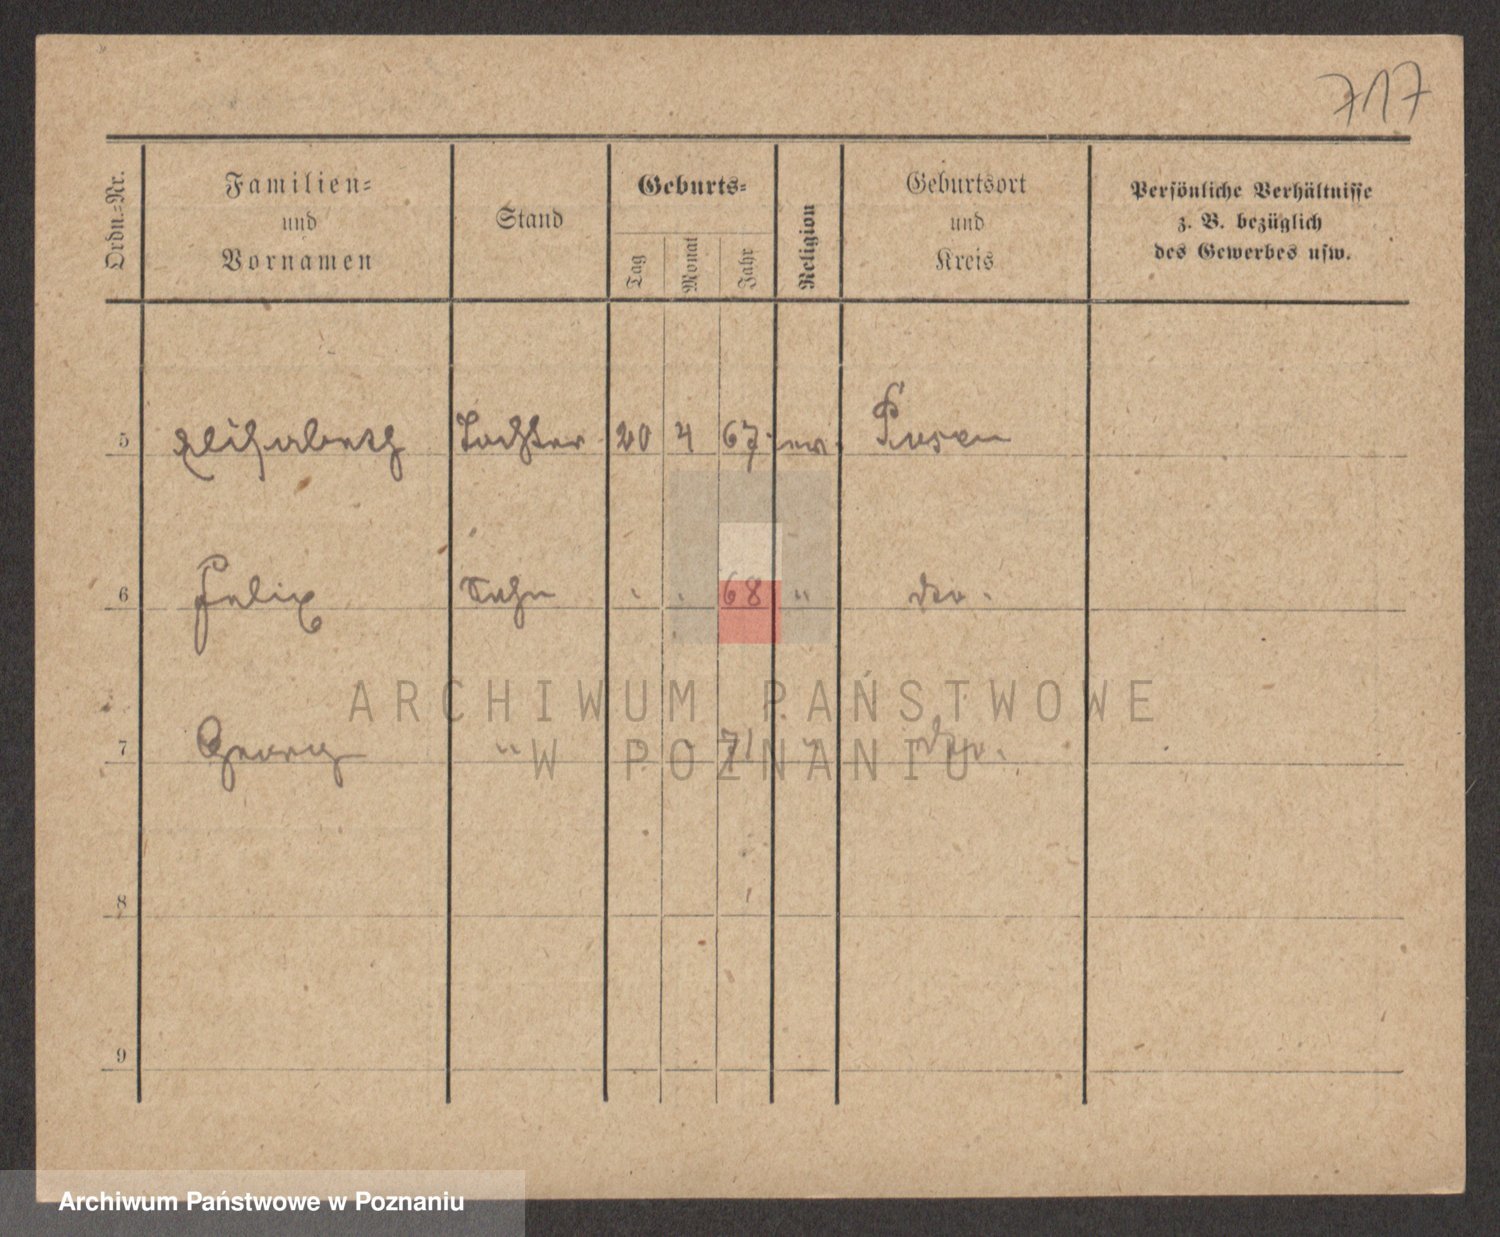 717
Ordn.-Nr.
Familien-
und
Vornamen
Stand
Geburts-
Tag
Monat
Jahr
Religion
Geburtsort
und
Kreis
Persönliche Verhältnisse
z. B. bezüglich
des Gewerbes usw.
5 Elisabeth Tochter 20 4 67 ev. Posen
6 Felix Sohn " " 68 " dto.
7 Georg " " " 71 " dto.
8
9
ARCHIWUM PAŃSTWOWE
W POZNANIU
Archiwum Państwowe w Poznaniu